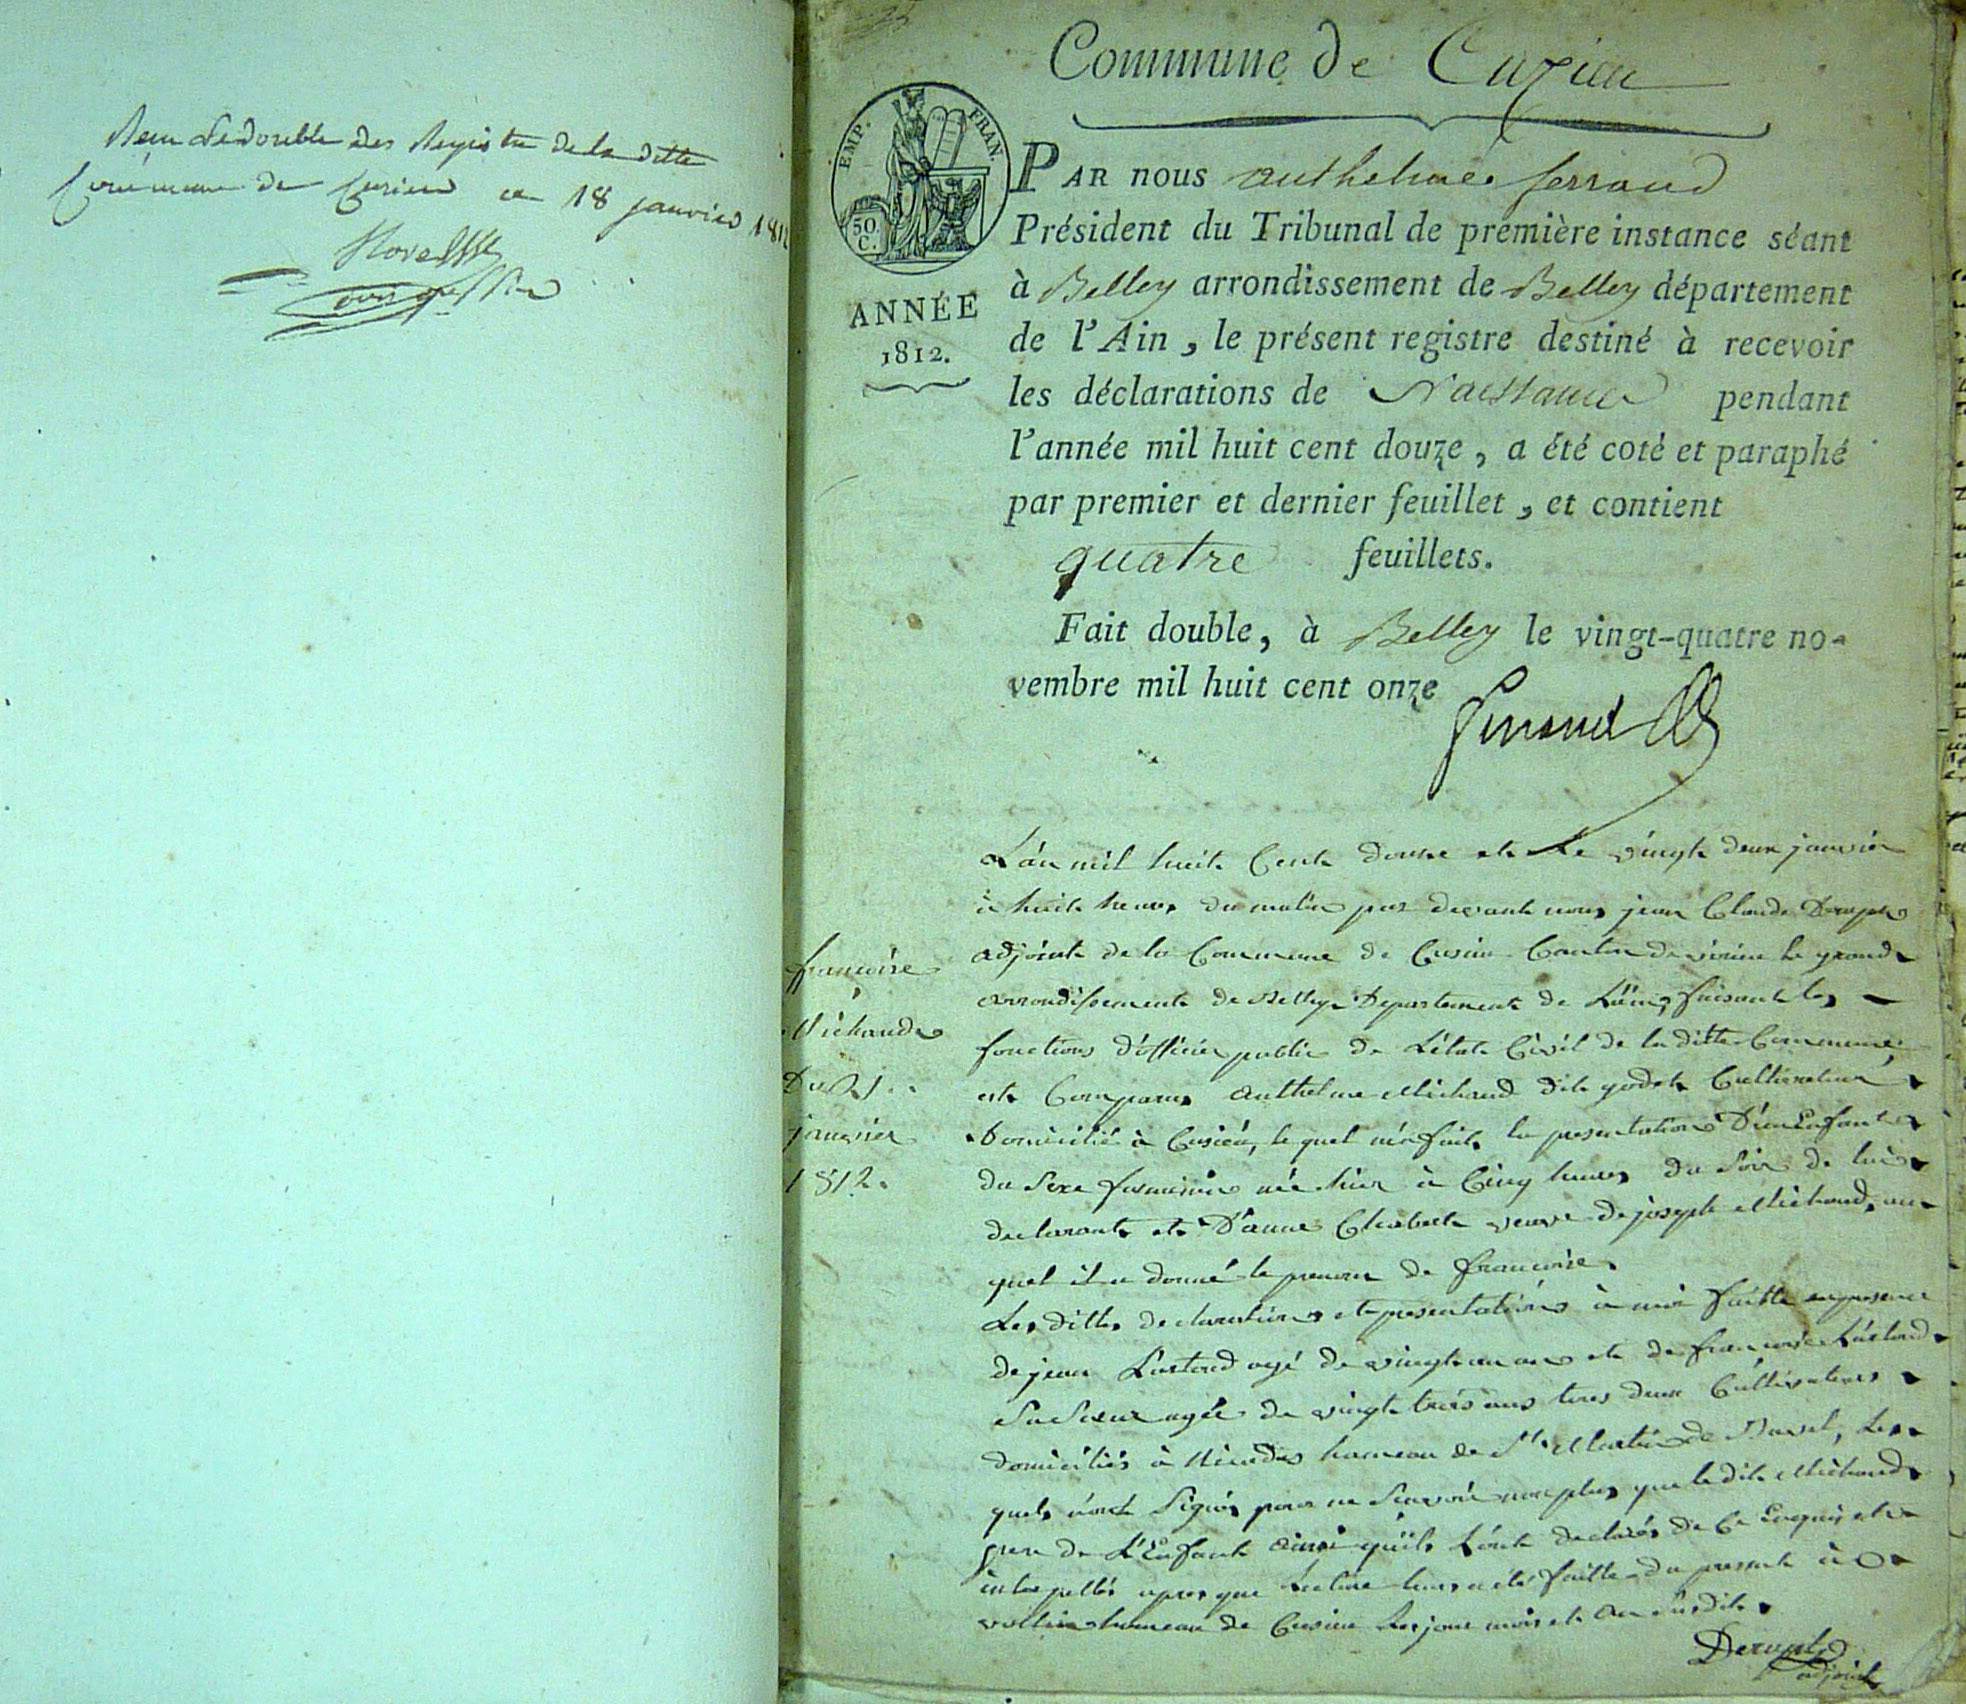 Reçu le double des Registre de la ditte
Commune de Cuzieu ce 18 janvier 1812
Commune de Cuzieu
EMP. FRAN.
50 C.
ANNÉE
1812.
PAR nous Anthelme ferrand
Président du Tribunal de première instance séant
à Belley arrondissement de Belley département
de l'Ain, le présent registre destiné à recevoir
les déclarations de Naissance pendant
l'année mil huit cent douze, a été coté et paraphé
par premier et dernier feuillet, et contient
quatre feuillets.
Fait double, à Belley le vingt-quatre no-
vembre mil huit cent onze
ferrand
francoise
Michaud
Du 21.
janvier
1812.
L'an mil huit Cent douse et le vingt deux janvier
à huit heures du matin par devant nous jean Claude
adjoint de la Commune de Cusieu Canton de virieu le grand
arrondissement de Belley Departement de L'ain, faisant les
fonctions d'officier public de L'état Civil de la ditte Commune,
est Comparus anthelme Michaud dit godet Cultivateur
Domicilié à Cusieu, le quel m'a fait la presentation D'un Enfant
du sexe feminin née hier à Cinq heures du soir de lui
declarant et D'anne Chabert veuve de joseph Michaud, au
quel il a donné le prenom de francoise.
Les dittes declarations et presentations à moi faitte en presence
de jean Lustard agé de vingt un ans et de francoise Lustard
Sa Soeur agée de vingt trois ans tous deux Cultivateurs
domiciliés à hameau de St. Martin de Bavel, Les
quels n'ont Signés pour ne Scavoir non plus que le dit Michaud
pere de L'Enfant ainsi qu'ils L'ont declarés de Ce Enquis et
interpellés apres que lecture leurs a été faitte du present à
vollien hameau de Cusieu Les jour mois et an Susdit.
adjoint